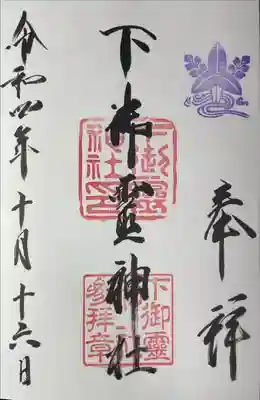 奉拝
下御靈神社
下御靈
神社印
下御靈
參拝章
令和四年十月十六日